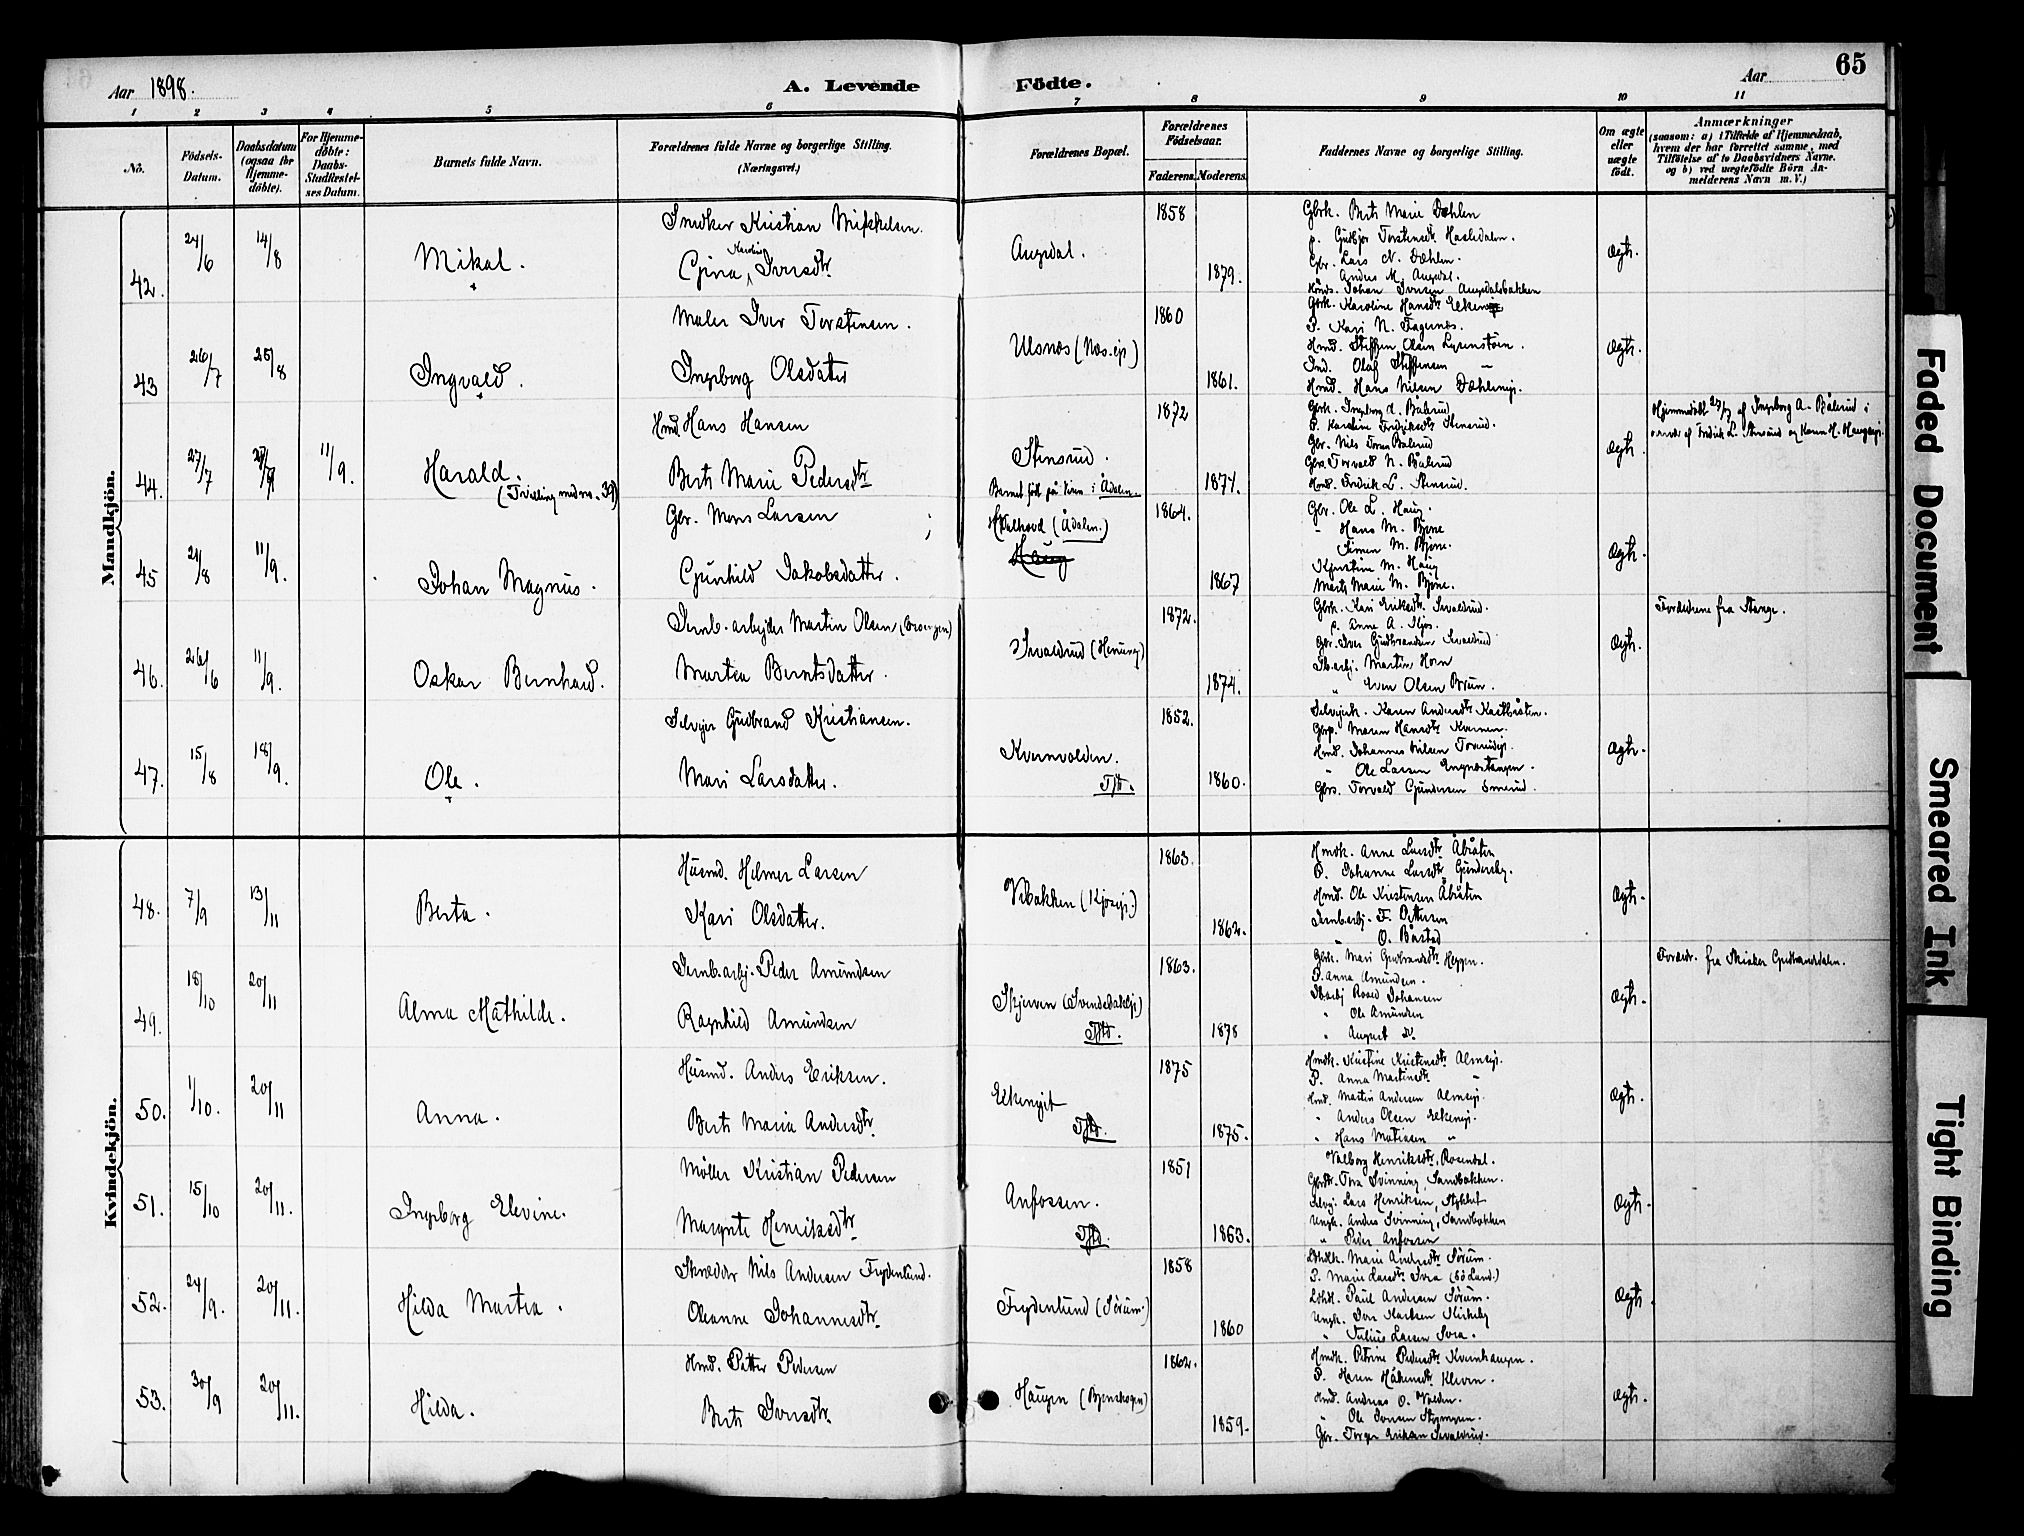 Aar 1898.
A. Levende Födte.
Aar
65
1 2 3 4 5 6 7 8 9 10 11
No.
Födsels-Datum.
Daabsdatum (ogsaa for Hjemmedöbte).
For Hjemmedöbte: Daabs-Stadfæstelses Datum.
Barnets fulde Navn.
Forældrenes fulde Navne og borgerlige Stilling. (Næringsvei.)
Forældrenes Bopæl.
Forældrenes Födselsaar.
Faderens. Moderens.
Faddernes Navne og borgerlige Stilling.
Om ægte eller uægte födt.
Anmærkninger
(saasom: a) i Tilfælde af Hjemmedaab, hvem der har forrettet samme, med Tilföielse af to Daabsvidners Navne. og b) ved uægtefödte Börn Anmelderens Navn m. V.)
Mandkjön.
42. 24/6 14/8 Mikal.
Snedker Kristian Mikkelsen.
Gina Karoline Iversdtr
Augedal. 1858 1879.
Gbrk. Berte Marie Dæhlen
p. Gudbjør Torstensdtr. Hasledalen.
Gbr. Lars N. Dæhlen.
Anders M. Augedal.
Johan Iversen Augedalsbakken
Ægte.
43 26/7 28/8 Ingvald.
Maler Iver Torstensen.
Ingeborg Olsdatter
Ulsnæs (Næs.ejd) 1860 1861.
Gbrk. Karoline Hansdtr
P. Kari N. Fagernæs.
Hmd. Steffen Olsen
Ind. Olaf Steffensen "
Hmd. Hans Nilsen Dæhlenejd.
Ægte.
44. 27/7 11/9. Harald. (Tvilling med no. 39)
Hmd. Hans Hansen
Berte Marie Pedersdtr
Stensrud.
Barnet født på i Ådalen.
1872 1874.
Gbrk. Ingeborg A. Bålerud
P. Karoline Fredriksdtr Stensrud.
Gbr. Nils Iversen Bålerud
Gbrs. Torvald N. Bålerud
Hmd. Fredrik L. Stensrud.
Ægte.
Hjemmedøbt 27/7 af Ingeborg A. Bålerud i
nærvær af Fredrik L. Stensrud og Karen H. Haugsejd.
45 21/8 11/9. Johan Magnus.
Gbr. Mons Larsen
Gunhild Jakobsdatter.
Kalhovd (Ådalen.)
Haug
1864. 1867
Gbr. Ole L. Haug.
" Hans M. Bjøne
Simen M. Bjøne.
Kjerstine M. Haug
Marte Marie M. Bjøne.
Ægte.
46. 26/6 11/9. Oskar Bernhard.
Jernb.arbejder Martin Olsen
Martea Berntsdatter.
Sevaldrud 1872. 1874.
Gbrk. Kari Eriksdtr. Sevaldrud.
p. Anne A.
Gbr. Iver Gudbrandsen Sevaldrud
Jb.arbj. Martin Horn
" Even Olsen Brun.
Ægte.
Forældrene fra Stange.
47. 15/8 18/9. Ole.
Selvejer Gudbrand Kristiansen.
Mari Larsdatter.
Kvernvolden. Tjtd. 1852. 1860.
Selvejerk. Karen Andersdtr Kastbråten.
Gbrp. Maren Hansdtr Kvernen.
Hmd. Johannes Nilsen
" Ole Larsen Engnæstangen.
Gbrs. Torvald Gundersen Smerud.
Ægte.
Kvindekjön.
48. 7/9 13/11 Berta.
Husmd. Helmer Larsen
Kari Olsdatter.
Vebakken 1863. 1862.
Hmdk. Anne Larsdtr. Åbråten
P. Johanne Larsdtr Gundersby.
Hmd. Ole Kristensen Åbråten
Jernb.arbj. F. Pettersen
" O. Bårstad
Ægte.
49. 18/10 20/11 Alma Mathilde.
Jernb.arbj. Peder Amundsen
Ragnhild Amundsen
Skjerven Tjtd. 1863. 1878
Gbrk. Mari Gudbrandsdtr. Heggen.
P. Anna Amundsen.
Jb.arbj Roald Johansen
" Ole Amundsen
" August
Ægte.
Forældr. fra Skiaker Gudbrandsdalen.
50. 1/10. 20/11 Anna.
Husmd. Anders Eriksen.
Berte Maria Andersdtr.
Tjtd. 1875 1875.
Hmdk. Kristine Kristensdtr Almsejd.
P. Anna Martinsdtr "
Hmd. Martin Andersen Almsejd.
" Anders Olsen
" Hans Matiasen "
Ægte.
51. 15/10 20/11. Ingeborg Elevine.
Møller Kristian Pedersen
Margrete Henriksdtr
Anfossen. Tjtd. 1851 1863.
Valborg Henriksdtr, Rosendal.
Svinning, Sandbakken.
Selvej. Lars Henriksen,
Ungk. Anders Svinning, Sandbakken
" Peder Anfossen
Ægte.
52. 24/9. 20/11. Hilda Martea.
Skrædder Nils Andersen Frydenlund.
Oleanne Johannesdtr.
Frydenlund (Sørum.) 1858 1860
Marie Andersdtr Sørum.
P. Marie Larsdtr Svea (Sø Land.)
Paul Andersen Sørum.
Ungk. Iver Karlsen Kirkeby
" Julius Larsen Svea.
Ægte.
53. 30/9 20/11. Hilda.
Hmd. Petter Pedersen
Berte Iversdtr.
Haugen 1862. 1859.
Hmdk. Petrine Pedersdtr Kvernhaugen.
P. Karen Håkensdtr. Kleven.
Hmd. Andreas O. Volden.
" Ole Iversen
Gbr. Torger Eriksen Sevaldrud.
Ægte.
Faded Document
Smeared Ink
Tight Binding